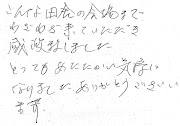 こんな田舎の会場まで
わざわざ来ていただき
感激しました
とってもあたたかい気持に
なりました。ありがとうござい
ます。